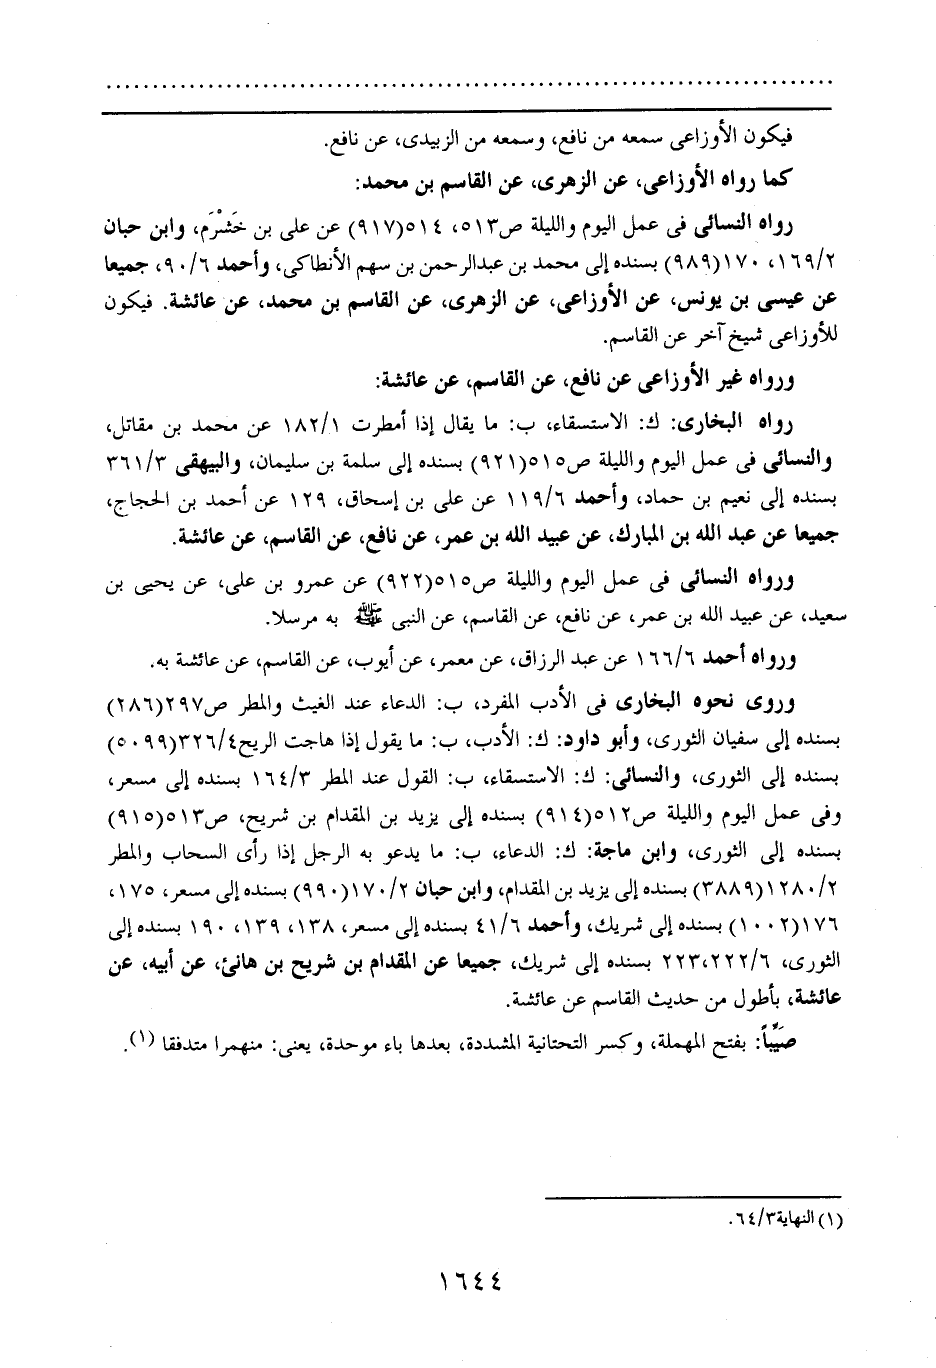 فيكون الأوزاعى سمعه من نافع، وسمعه من الزبيدى، عن نافع.
كما رواه الأوزاعى، عن الزهرى، عن القاسم بن محمد:
رواه النسائى فى عمل اليوم والليلة ص٥١٣، ٥١٤(٩١٧) عن على بن خَشْرَم، وابن حبان
١٦٩/٢، ١٧٠(٩٨٩) بسنده إلى محمد بن عبدالرحمن بن سهم الأنطاكى، وأحمد ٩٠/٦، جميعا
عن عيسى بن يونس، عن الأوزاعى، عن الزهرى، عن القاسم بن محمد، عن عائشة. فيكون
للأوزاعى شيخ آخر عن القاسم.
ورواه غير الأوزاعى عن نافع، عن القاسم، عن عائشة:
رواه البخارى: ك: الاستسقاء، ب: ما يقال إذا أمطرت ١٨٢/١ عن محمد بن مقاتل،
والنسائى فى عمل اليوم والليلة ص٥١٥(٩٢١) بسنده إلى سلمة بن سليمان، والبيهقى ٣٦١/٣
بسنده إلى نعيم بن حماد، وأحمد ١١٩/٦ عن على بن إسحاق، ١٢٩ عن أحمد بن الحجاج،
جميعا عن عبد الله بن المبارك، عن عبيد الله بن عمر، عن نافع، عن القاسم، عن عائشة.
ورواه النسائى فى عمل اليوم والليلة ص٥١٥(٩٢٢) عن عمرو بن على، عن يحيى بن
سعيد، عن عبيد الله بن عمر، عن نافع، عن القاسم، عن النبى ﷺ به مرسلا.
ورواه أحمد ١٦٦/٦ عن عبد الرزاق، عن معمر، عن أيوب، عن القاسم، عن عائشة به.
وروى نحوه البخارى فى الأدب المفرد، ب: الدعاء عند الغيث والمطر ص٢٩٧(٢٨٦)
بسنده إلى سفيان الثورى، وأبو داود: ك: الأدب، ب: ما يقول إذا هاجت الريح٣٢٦/٤(٥٠٩٩)
بسنده إلى الثورى، والنسائى: ك: الاستسقاء، ب: القول عند المطر ١٦٤/٣ بسنده إلى مسعر،
وفى عمل اليوم والليلة ص٥١٢(٩١٤) بسنده إلى يزيد بن المقدام بن شريح، ص٥١٣(٩١٥)
بسنده إلى الثورى، وابن ماجة: ك: الدعاء، ب: ما يدعو به الرجل إذا رأى السحاب والمطر
١٢٨٠/٢(٣٨٨٩) بسنده إلى يزيد بن المقدام، وابن حبان ١٧٠/٢(٩٩٠) بسنده إلى مسعر، ١٧٥،
١٧٦(١٠٠٢) بسنده إلى شريك، وأحمد ٤١/٦ بسنده إلى مسعر، ١٣٨، ١٣٩، ١٩٠ بسنده إلى
الثورى، ٢٢٣،٢٢٢/٦ بسنده إلى شريك، جميعا عن المقدام بن شريح بن هانئ، عن أبيه، عن
عائشة، بأطول من حديث القاسم عن عائشة.
صَيِّباً: بفتح المهملة، وكسر التحتانية المشددة، بعدها باء موحدة، يعنى: منهمرا متدفقا (١).
(١) النهاية٦٤/٣.
١٦٤٤